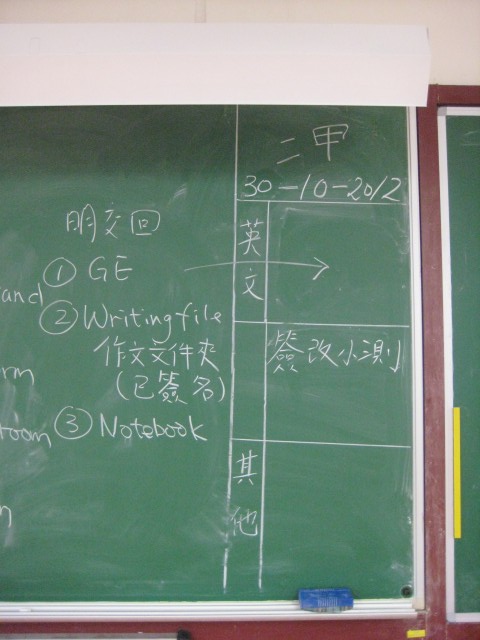 二甲
30-10-2012
明交回
① GE
② Writing file
作文文件夾
(已簽名)
③ Notebook
英文
簽改小測
其他
and
rm
room